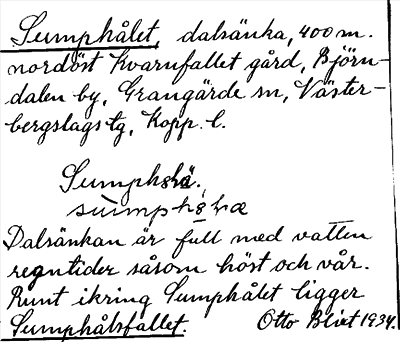 Sumphålet, dalsänka, 400 m.
nordöst Kvarnfallet gård, Björn-
dalen by, Grangärde sn, Väster-
bergslags tg, Kopp. l.
Dalsänkan är full med vatten
regntider såsom höst och vår.
Runt ikring Sumphålet ligger
Sumphålsfallet. Otto Blixt 1934.